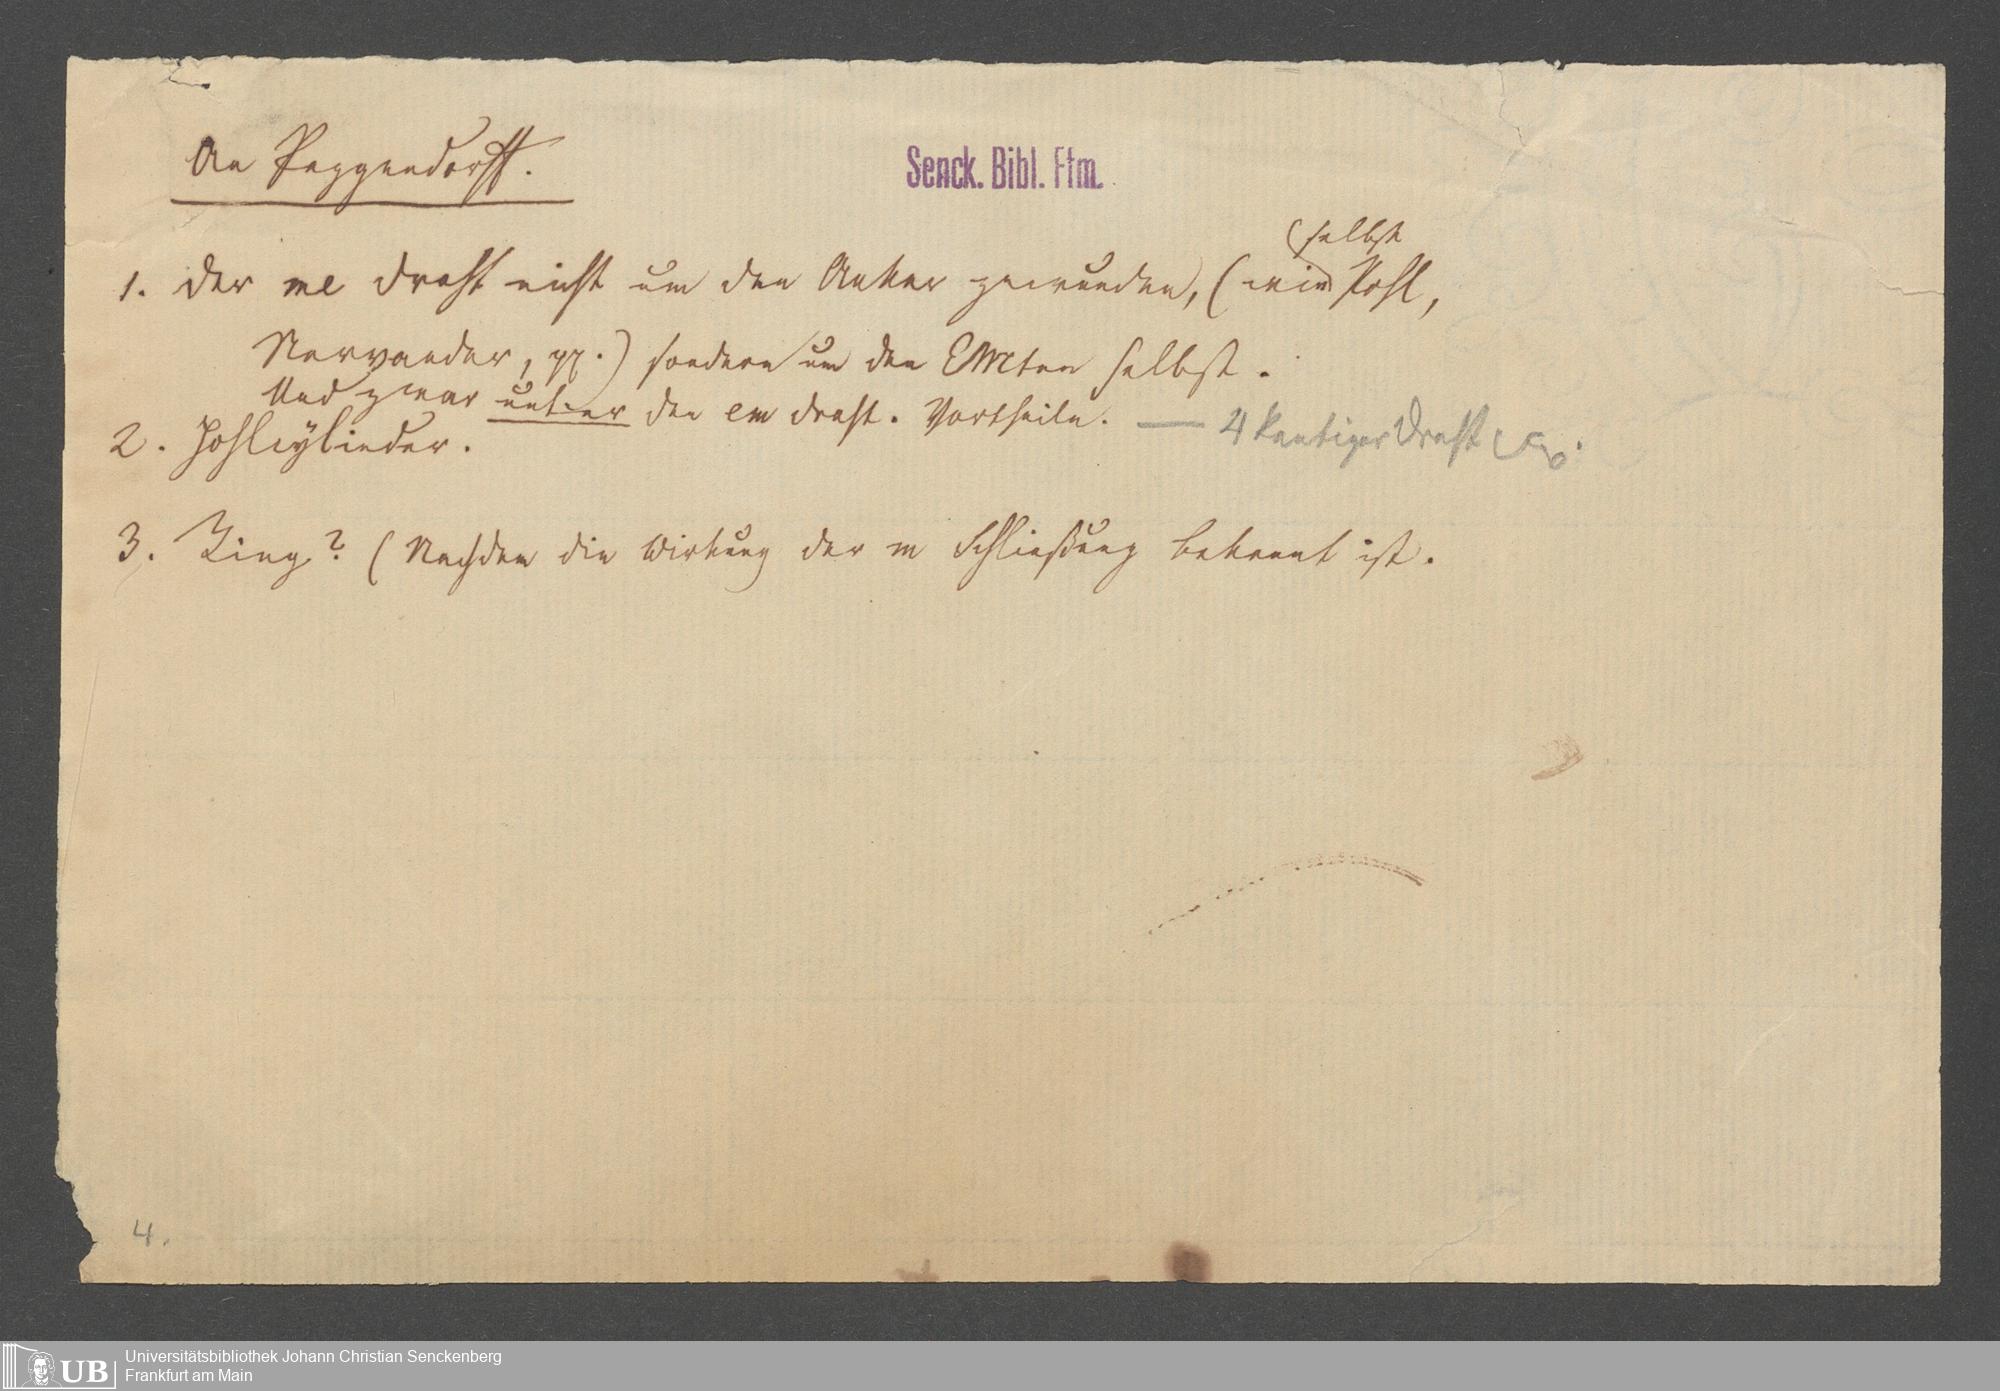 An Poggendorff.
Senck. Bibl. Ffm.
selbst
1. Der me Draht nicht um den Anker gewunden, (wie Pohl,
Nervander, pp.) sondern um den EMten selbst.
Und zwar unter den em Draht. Vortheile. — 4 kantiger Draht
2. Hohlcylinder.
3. Ring? (Nachdem die Wirkung der m Schließung bekannt ist.
4.
UB
Universitätsbibliothek Johann Christian Senckenberg
Frankfurt am Main